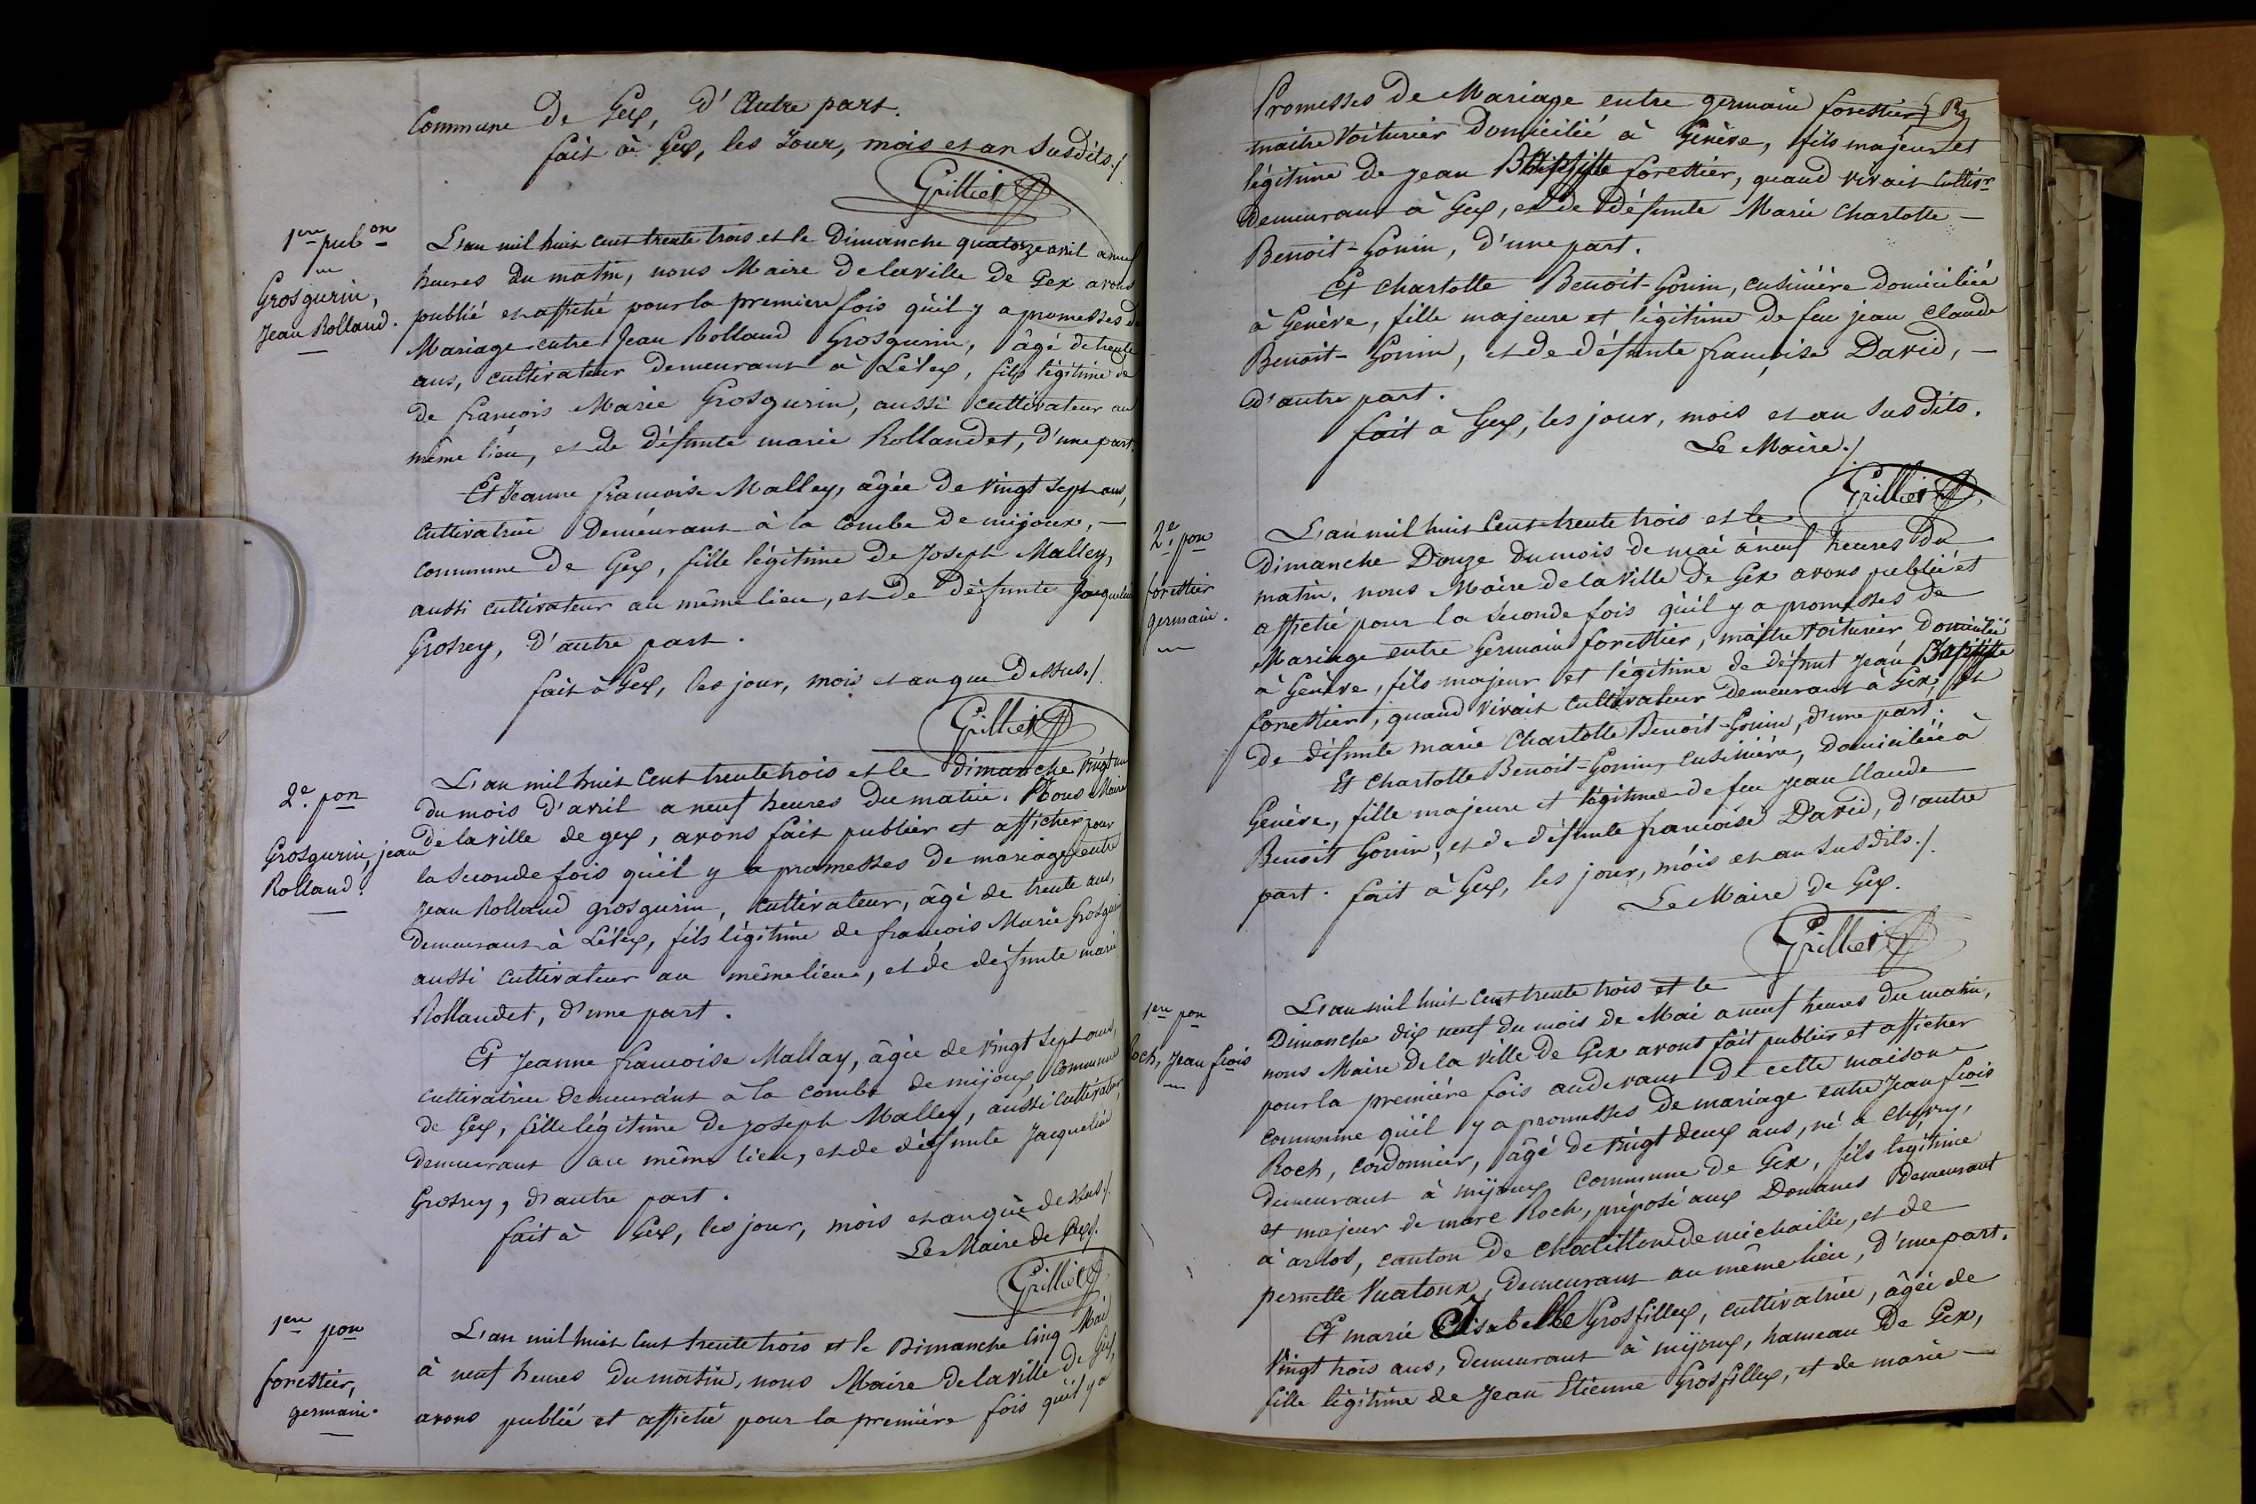 Commune de Gex, d'Autre part.
fait à Gex, les Jour, mois et an Susdits./.
Grillier
1ere pubon
Grosgurin,
Jean Rolland.
L'an mil huit cent trente trois et le Dimanche quatorze avril a neuf
heures du matin, nous Maire de la ville de Gex avons
publié et affiché pour la premiere fois qu'il y a promesses de
Mariage entre Jean Rolland Grosgurin, âgé de trente
ans, cultivateur demeurant à Lélex, fils légitime de
de francois Marie Grosgurin, aussi cultivateur au
même lieu, et de défunte marie Rollandet, d'une part.
Et Jeanne francoise Malley, âgée de vingt sept ans,
cultivatrice demeurant à la Combe de mijoux, —
commune de Gex, fille légitime de Joseph Malley,
aussi cultivateur au même lieu, et de défunte Jacqueline
Grosrey, d'autre part.
fait à Gex, les jour, mois et an que Dessus./.
Grillier
2e. pon
Grosgurin, jean
Rolland.
L'an mil huit Cent trente trois et le Dimanche Vingt un
du mois d'avril a neuf heures du matin. Nous Maire
de la ville de gex, avons fait publier et afficher pour
la seconde fois qu'il y a promesses de mariage entre
Jean Rolland grosgurin, cultivateur, âgé de trente ans,
demeurant à Lélex, fils légitime de francois Marie Grosgurin
aussi cultivateur au même lieu, et de défunte marie
Rollandet, d'une part.
Et Jeanne francoise Mallay, âgée de vingt sept ans,
cultivatrice demeurant à la combe de mijoux, Commune
de Gex, fille légitime de Joseph Malley, aussi cultivateur
demeurant au même lieu, et de défunte Jacqueline
Grosrey, d'autre part.
fait à Gex, les jour, mois et an que dessus./.
Le Maire de Gex/.
Grillier
1ere pon
forestier,
germain.
L'an mil huit Cent trente trois et le Dimanche Cinq Mai
à neuf heures du matin, nous Maire de la ville de Gex,
avons publié et affiché pour la première fois qu'il y a
Promesses de Mariage entre germain forestier,
maitre Voiturier Domicilié à Genève, fils majeur et
légitime de Jean Baptiste forestier, quand vivait Cultivr
demeurant à Gex, et de Défunte Marie Charlotte —
Benoit-Gonin, d'une part.
Et Charlotte Benoit-Gonin, cusinière domiciliée
à Genève, fille majeure et légitime de feu jean Claude
Benoit-Gonin, et de défunte françoise David, —
d'autre part.
fait à Gex, les jour, mois et an Susdits.
Le Maire./.
Grillier
2e. pon
forestier
germain.
L'an mil huit Cent trente trois et le
Dimanche Douze du mois de mai à neuf heures du
matin. nous Maire de la Ville de Gex avons publié et
affiché pour la Seconde fois qu'il y a promesses de
Mariage entre Germain forestier, maitre voiturier domicilié
à Genève, fils majeur et légitime de défunt Jean Baptiste
forestier, quand vivait cultivateur demeurant à Gex, et
de défunte marie Charlotte Benoit-Gonin, d'une part.
Et Charlotte Benoit-Gonin, Cusinière, domiciliée à
Genève, fille majeure et légitime de feu Jean Claude
Benoit Gonin, et de défunte francoise David, d'autre
part. fait à Gex, les jour, mois et an susdits./.
Le Maire de Gex.
Grillier
1ere pon
Roch, Jean fcois
L'an mil huit Cent trente trois et le
Dimanche dix neuf du mois de Mai a neuf heures du matin,
nous Maire de la Ville de Gex avont fait publier et afficher
pour la première fois audevant de cette maison
commune qu'il y a promesses de mariage entre Jean fcois
Roch, cordonnier, âgé de vingt deux ans, né a Chevry,
demeurant à mijoux, Commune de Gex, fils légitime
et majeur de marc Roch, préposé aux Douanes demeurant
à arlod, canton de Chatillon de michaille, et de
pernette Vuatoux, demeurant au même lieu, d'une part.
Et marie Elisabelle Grosfilley, cultivatrice, âgée de
Vingt trois ans, demeurant à mijoux, hameau de Gex,
fille légitime de Jean Etienne Grosfilley, et de marie —